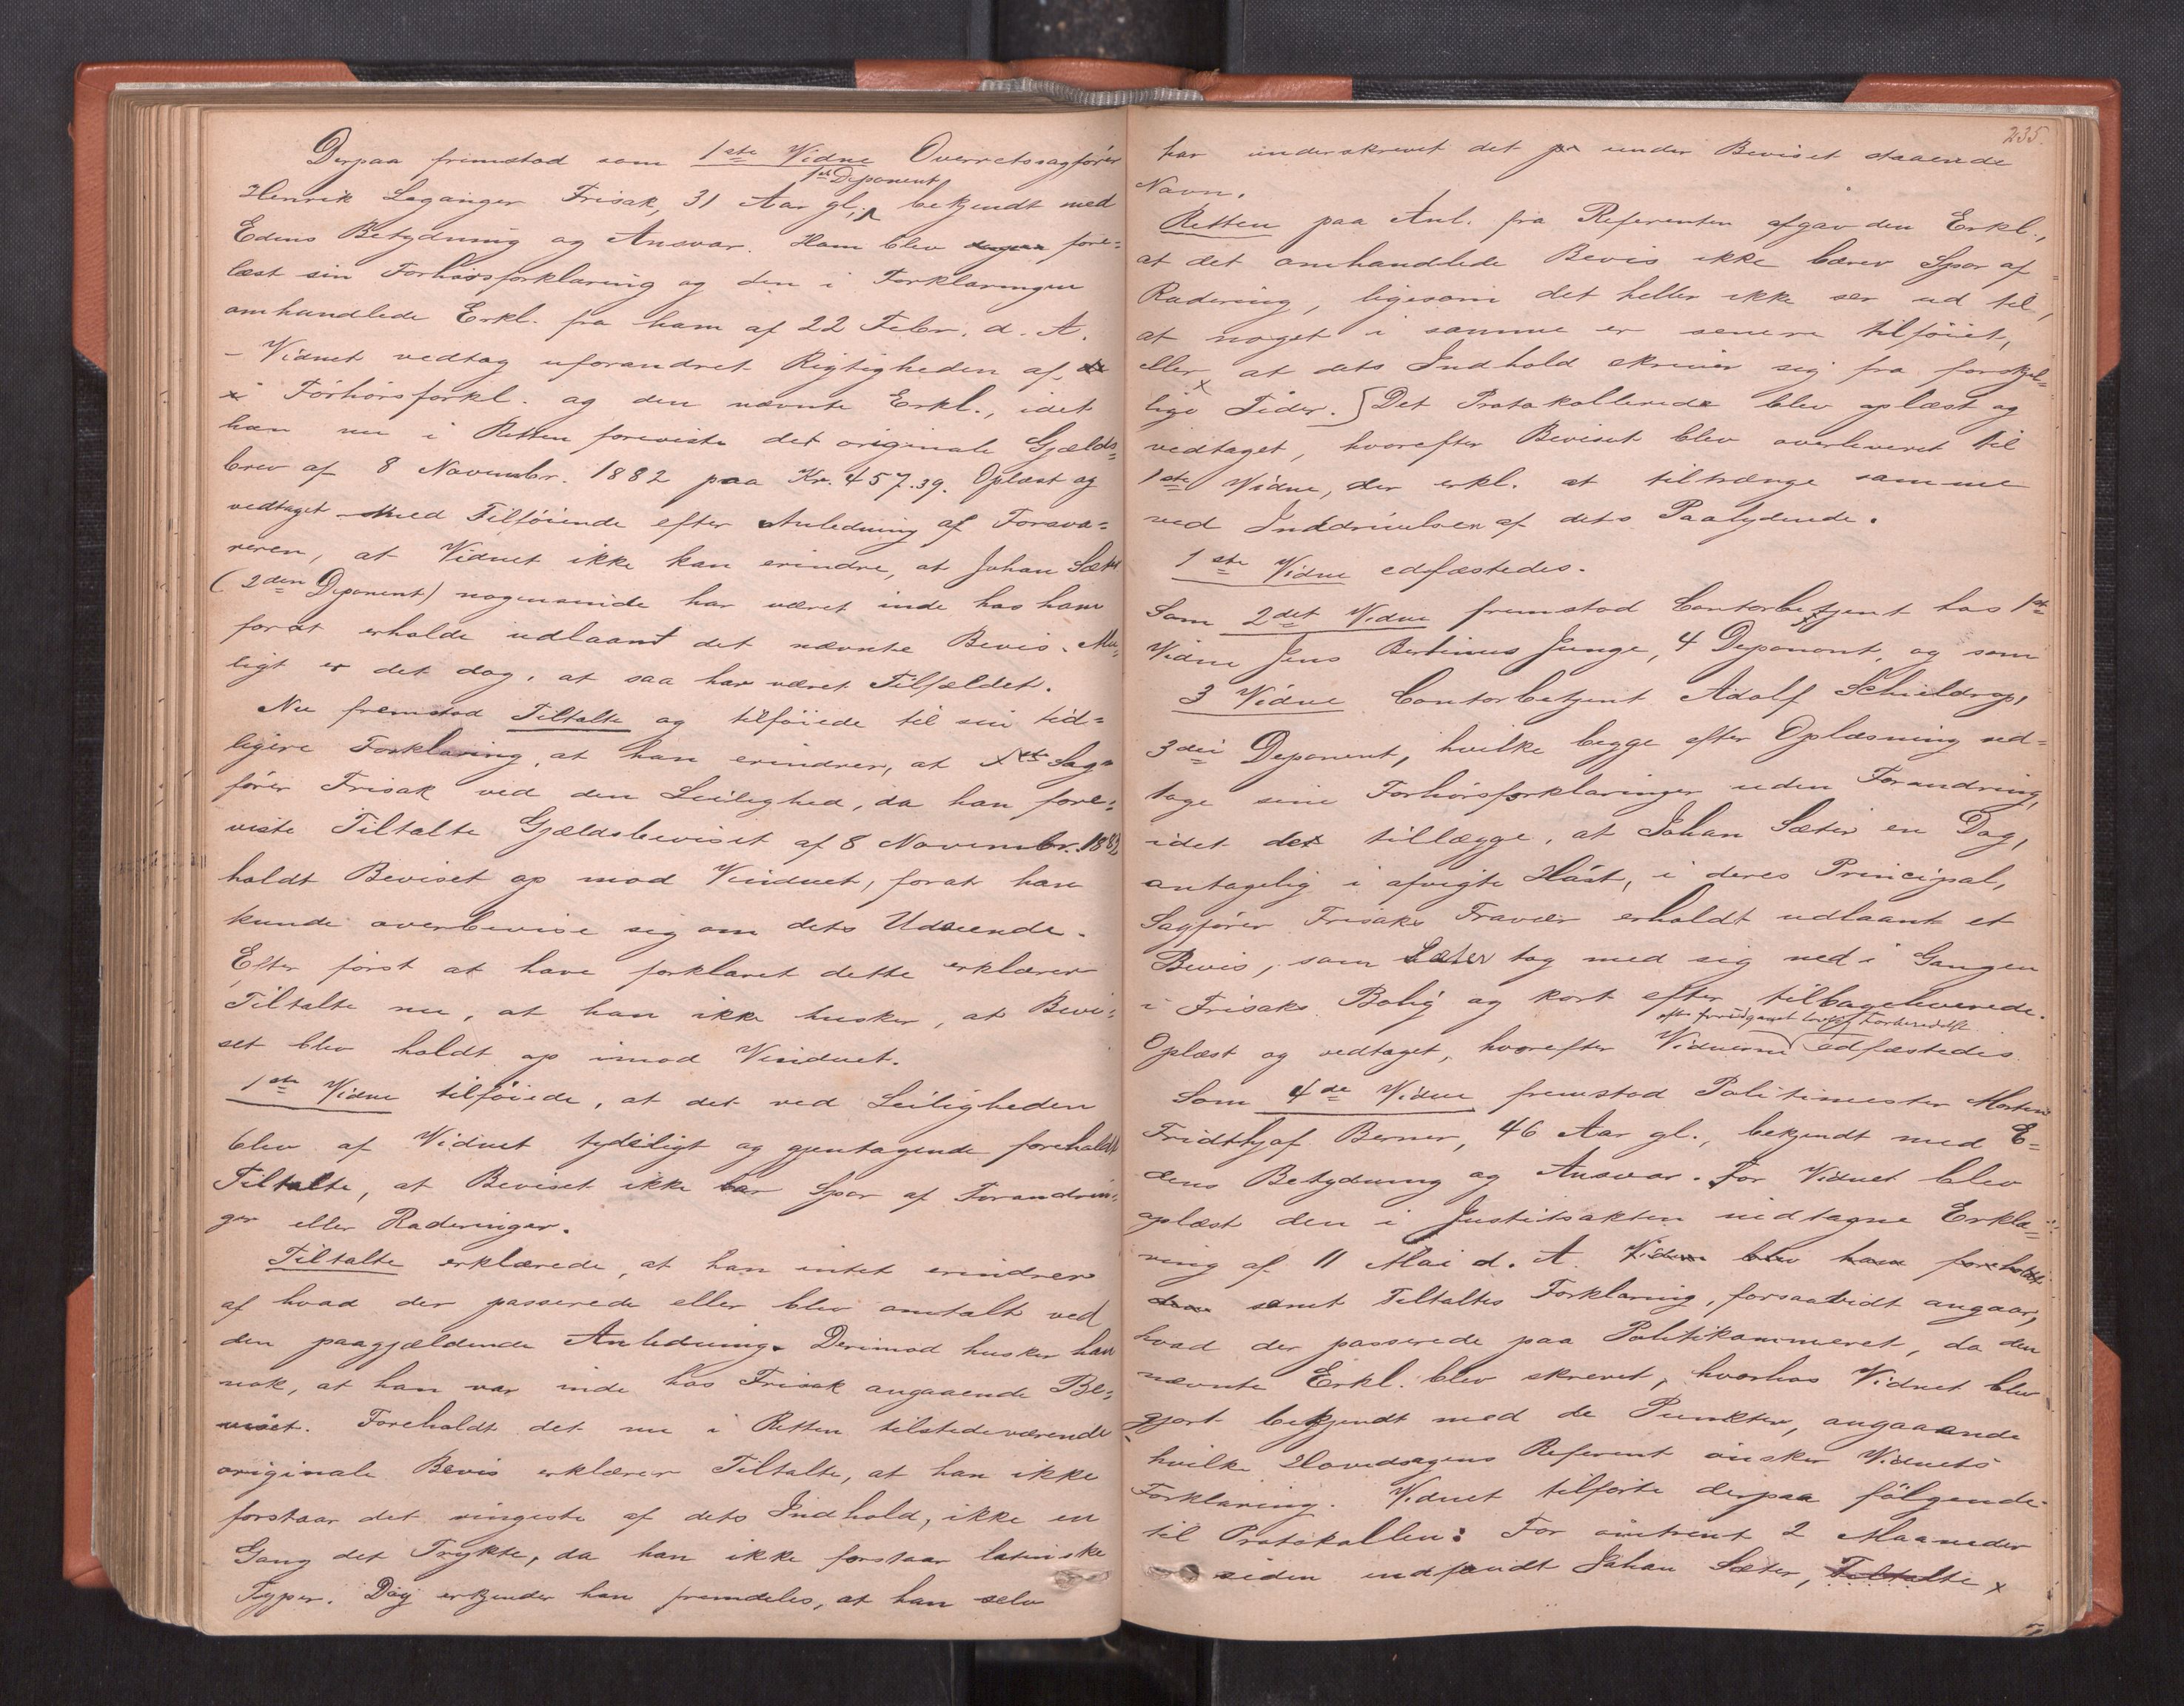 Derpaa fremstod som 1ste Vidne Overretssagfører
1ste Deponent
Henrik Leganger Frisak, 31 Aar gl., bekjendt med
Edens Betydning og Ansvar. Ham blev fore-
læst sin Forhørsforklaring og den i Forklaringen
omhandlede Erkl. fra ham af 22 Febr. d. A.
- Vidnet vedtog uforandret Rigtigheden af
Forhørsforkl. og den nævnte Erkl., idet
han nu i Retten foreviste det originale Gjælds-
brev af 8 Novembr. 1882 paa Kr. 457.39. Oplæst og
vedtaget med Tilføiende efter Anledning af Forsva-
reren, at Vidnet ikke kan erindre, at Johan Sæter
(2den Deponent) nogensinde har været inde hos ham
forat erholde udlaant det nævnte Bevis. Mu-
ligt er det dog, at saa har været Tilfældet.
Nu fremstod Tiltalte og tilføiede til sin tid-
ligere Forklaring, at han erindrer, at Sag-
fører Frisak ved den Leilighed, da han fore-
viste Tiltalte Gjældsbeviset af 8 Novembr. 1882
holdt Beviset op mod Vinduet, forat han
kunde overbevise sig om dets Udseende.
Efter først at have forklaret dette erklærer
Tiltalte nu, at han ikke husker, at Bevi-
set blev holdt op imod Vinduet.
1ste Vidne tilføiede, at det ved Leiligheden
blev af Vidnet tydeligt og gjentagende foreholdt
Tiltalte, at Beviset ikke bar Spor af Forandrin-
ger eller Raderinger.
Tiltalte erklærede, at han intet erindrer
af hvad der passerede eller blev omtalt ved
den paagjældende Anledning. Derimod husker han
nok, at han var inde hos Frisak angaaende Be-
viset. Foreholdt det nu i Retten tilstedeværende
originale Bevis erklærer Tiltalte, at han ikke
forstaar det ringeste af dets Indhold, ikke en
Gang det Trykte, da han ikke forstaar latinske
Typer. Dog erkjender han fremdeles, at han selv
235.
har underskrevet det under Beviset staaende
Navn.
Retten paa Anl. fra Referenten afgav den Erkl.,
at det omhandlede Bevis ikke bærer Spor af
Radering, ligesom det heller ikke ser ud til,
at noget i samme er senere tilføiet,
eller at dets Indhold skriver sig fra forskjel-
lige Tider. Det Protokollerede blev oplæst og
vedtaget, hvorefter Beviset blev overleveret til
1ste Vidne, der erkl. at tiltrænge samme
ved Inddrivelsen af dets Paalydende.
1ste Vidne edfæstedes.
Som 2det Vidne fremstod Contorbetjent hos 1ste
Vidne Jens Bertinus Junge, 4 Deponent, og som
3 Vidne Contorbetjent Adolf Schieldrop,
3die Deponent, hvilke begge efter Oplæsning ved-
tage sine Forhørsforklaringer uden Forandring,
idet de tillægge, at Johan Sæter en Dag,
antagelig i afvigte Høst, i deres Principal,
Sagfører Frisaks Fravær erholdt udlaant et
Bevis, som Sæter tog med sig ned i Gangen
i Frisaks Bolig og kort efter tilbageleverede.
efter foregaaet lovlig Forberedelse
Oplæst og vedtaget, hvorefter Vidnerne edfæstedes.
Som 4de Vidne fremstod Politimester Morten
Fridthjof Berner, 46 Aar gl., bekjendt med E-
dens Betydning og Ansvar. For Vidnet blev
oplæst den i Justitsakten indtagne Erklæ-
ring af 11 Mai d. A. Vidnet blev ham foreholdt
samt Tiltaltes Forklaring, forsaavidt angaar,
hvad der passerede paa Politikammeret, da den
nævnte Erkl. blev skrevet, hvorhos Vidnet blev
gjort bekjendt med de Punkter, angaaende
hvilke Hovedsagens Referent ønsker Vidnets
Forklaring. Vidnet tilførte derpaa følgende
til Protokollen: For omtrent 2 Maaneder
siden indfandt Johan Sæter, Tiltalte